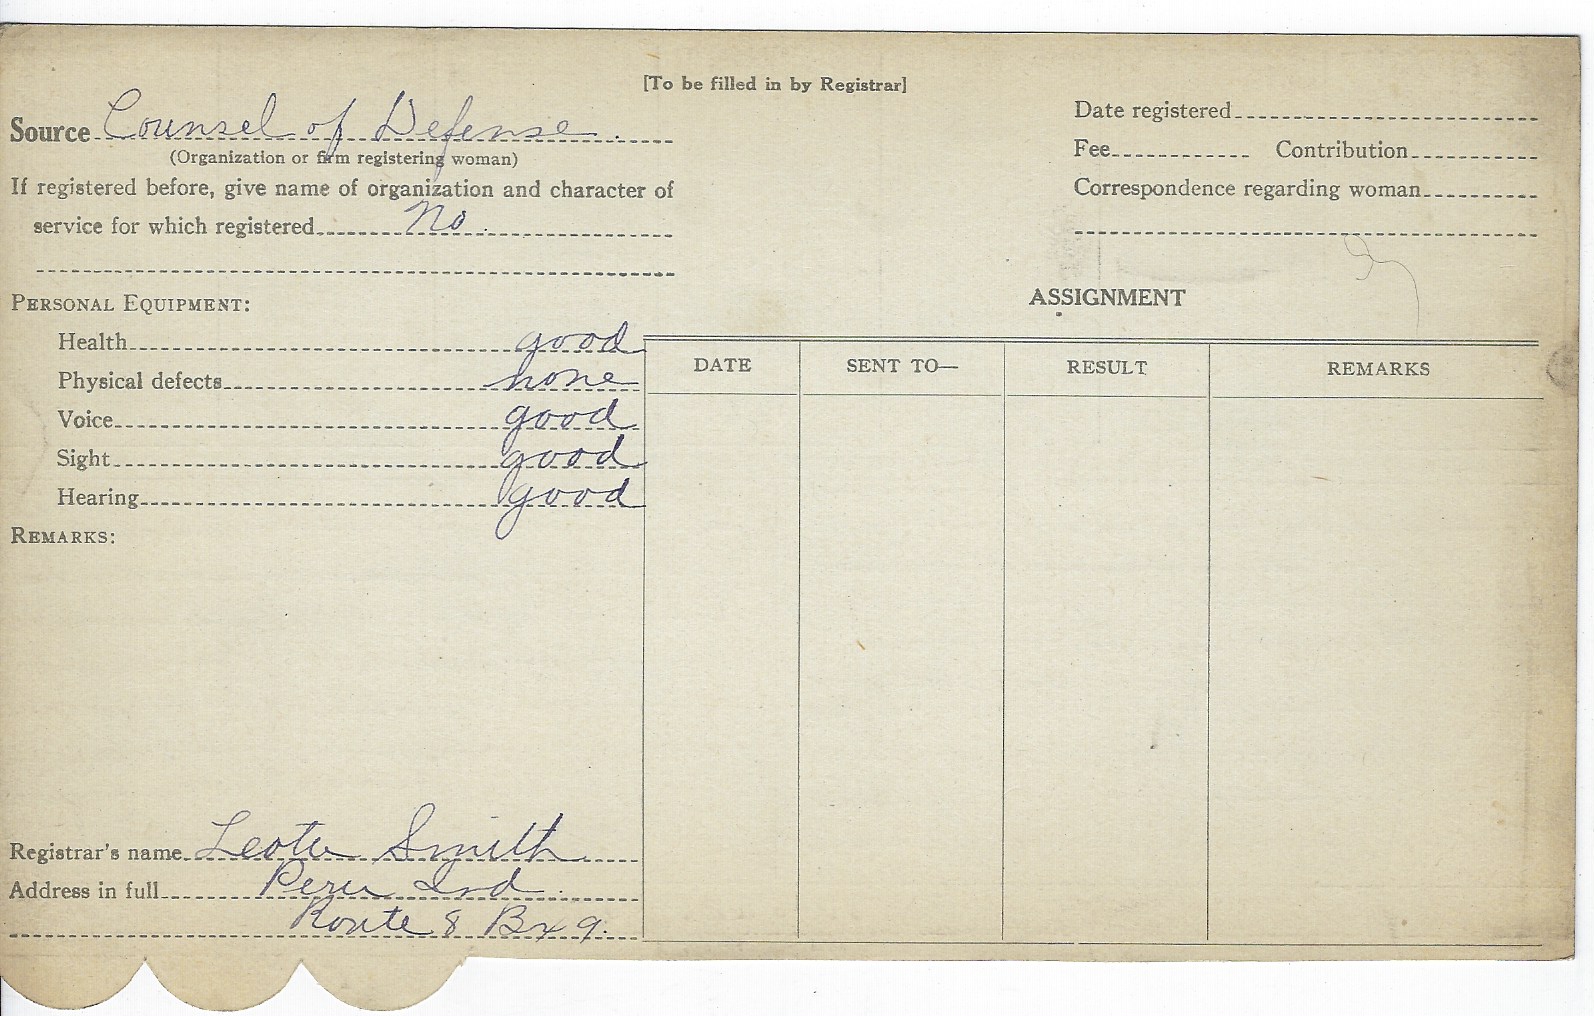 [To be filled in by Registrar]
Source Counsel of Defense.
(Organization or firm registering woman)
If registered before, give name of organization and character of
service for which registered No.
Date registered
Fee Contribution
Correspondence regarding woman
PERSONAL EQUIPMENT:
Health good
Physical defects none
Voice good
Sight good
Hearing good
REMARKS:
ASSIGNMENT
DATE SENT TO— RESULT REMARKS
Registrar's name Smith
Address in full Peru Ind.
Route 8 Bx 9.